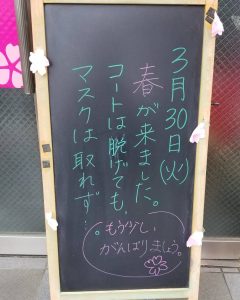 3月30日(火)
春が来ました。
コートは脱げても
マスクは取れず…
もう少し、
がんばりましょう。